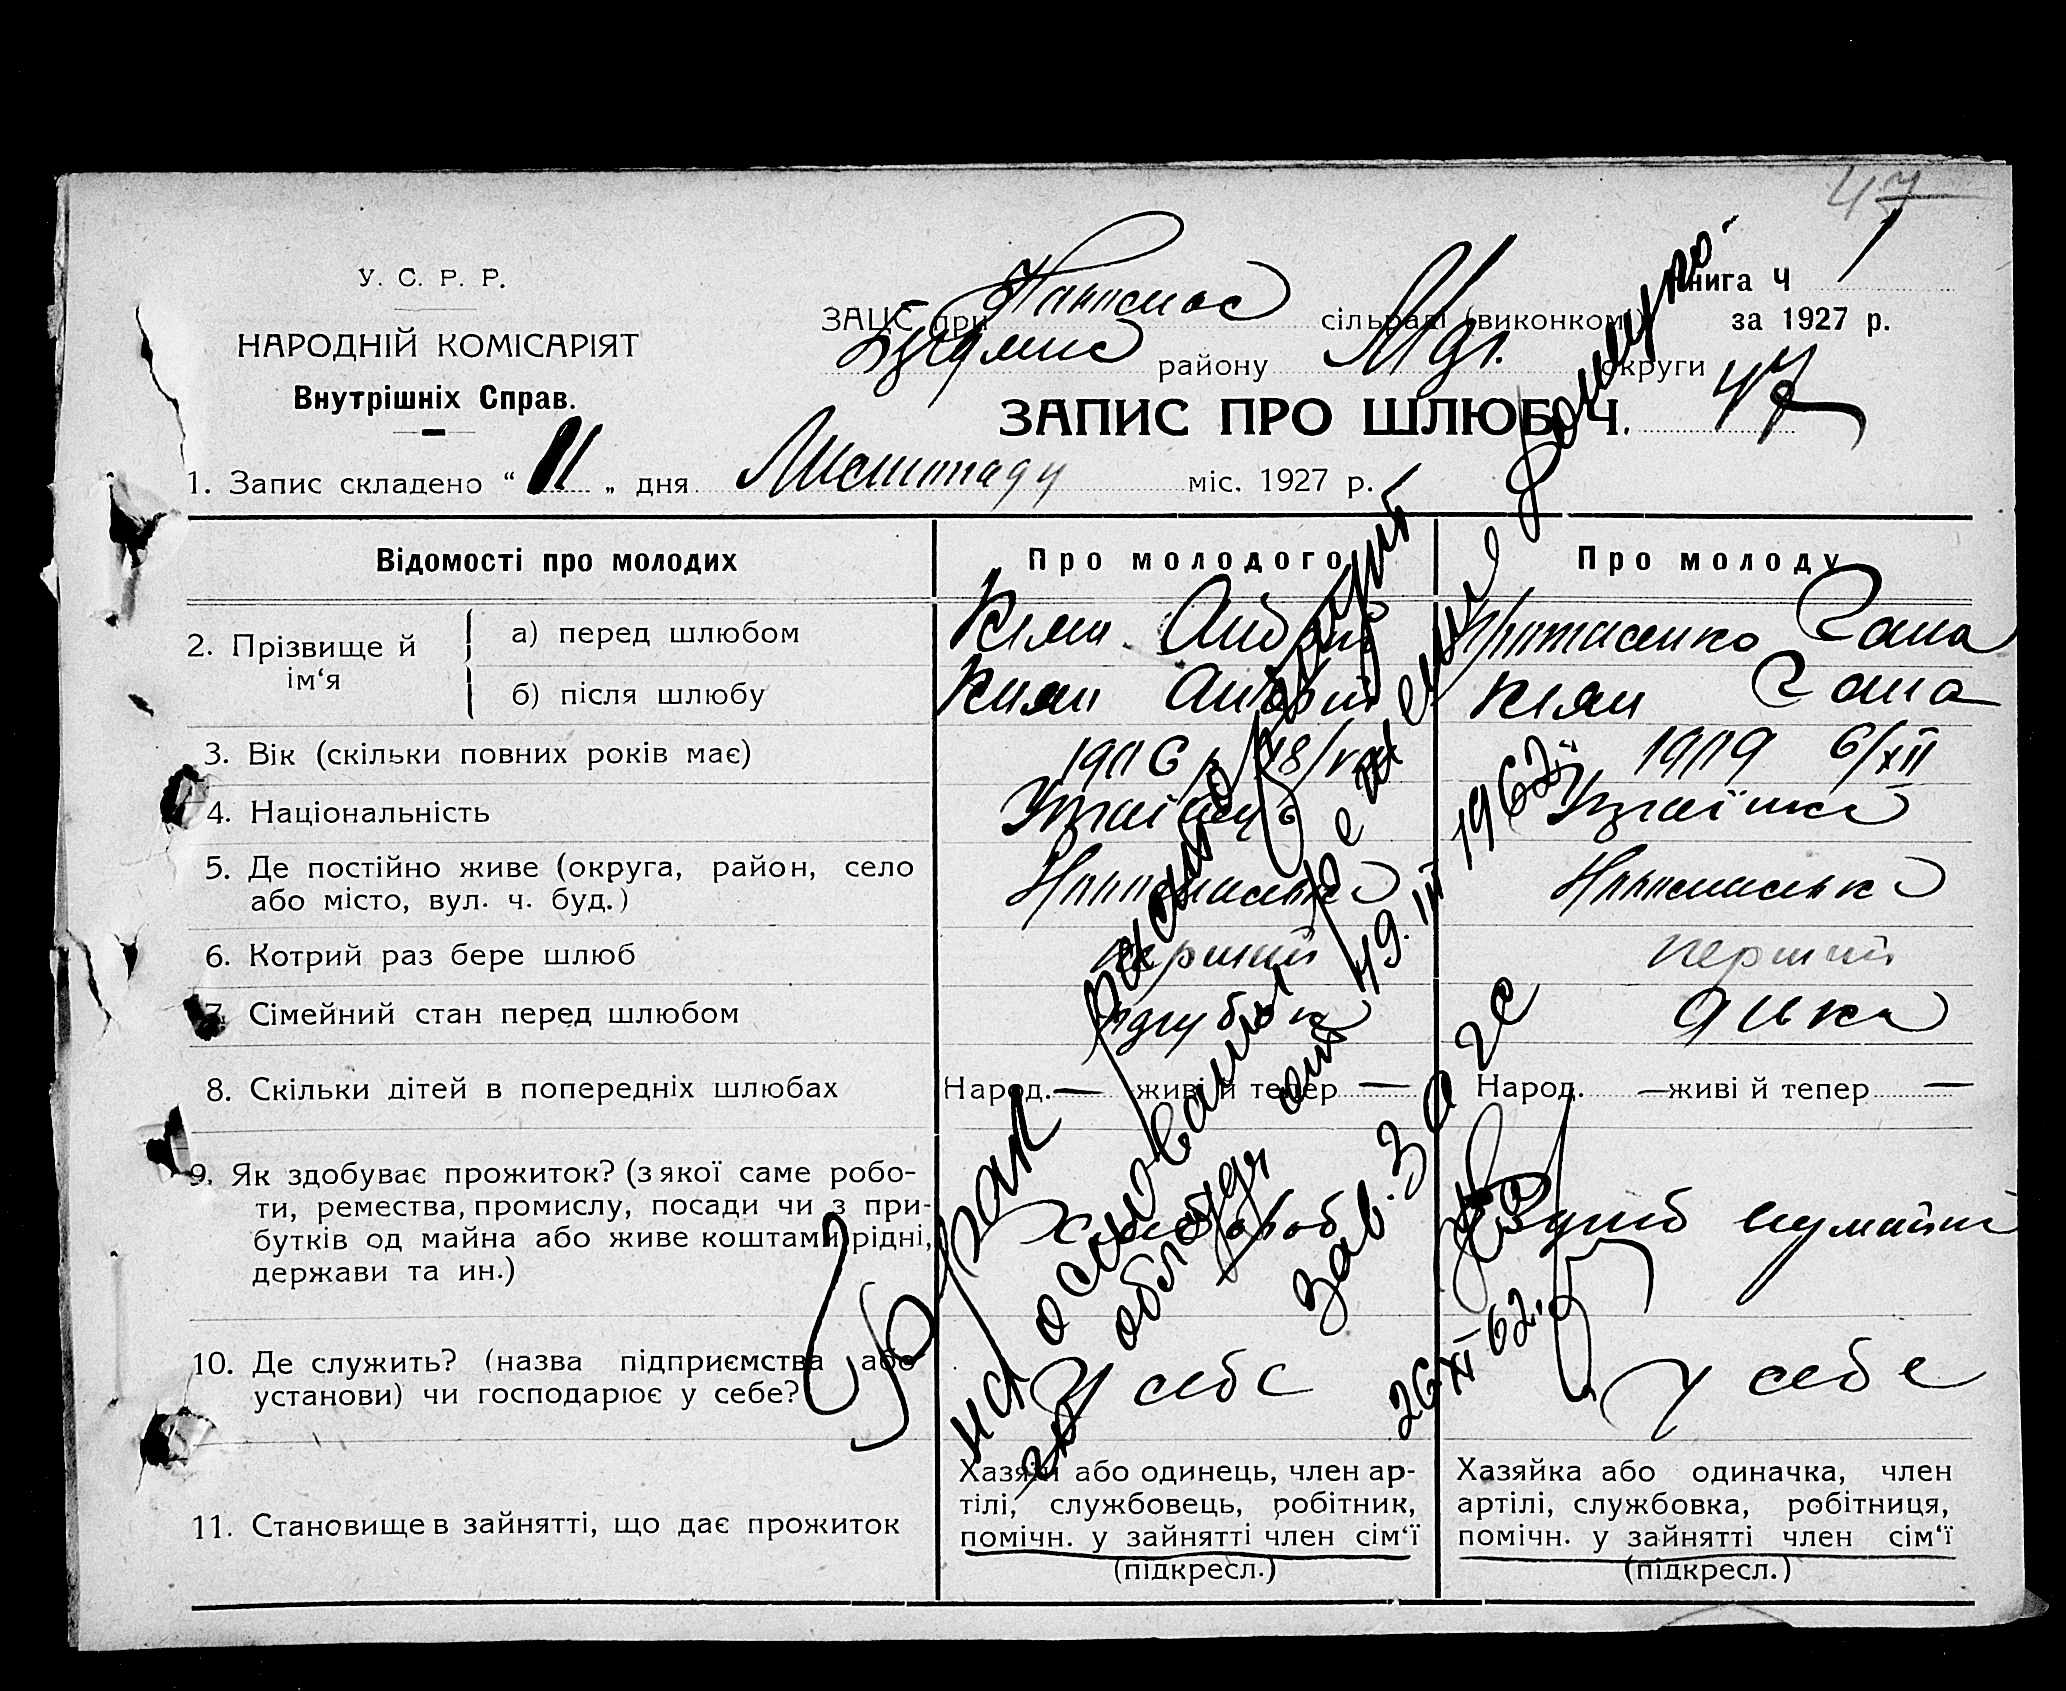 47
У. С. Р. Р.
НАРОДНІЙ КОМІСАРІЯТ
Внутрішніх Справ.
Книга Ч 1
ЗАЦС при сільраді (виконкомі) за 1927 р.
району округи
ЗАПИС ПРО ШЛЮБ Ч. 47
1. Запис складено “ 11 „ дня Листопаду міс. 1927 р.
Відомості про молодих
Про молодого
Про молоду
2. Прізвище й ім‘я
а) перед шлюбом
Киян Андрій
Протасенко Гана
б) після шлюбу
Киян Андрій
Киян Гана
3. Вік (скільки повних років має)
1906 18/
1909 6/XII
4. Національність
Україець
Українка
5. Де постійно живе (округа, район, село
або місто, вул. ч. буд.)
6. Котрий раз бере шлюб
перший
перший
7. Сімейний стан перед шлюбом
парубок
дівка
8. Скільки дітей в попередніх шлюбах
Народ. — живі й тепер —
Народ. — живі й тепер —
9. Як здобуває прожиток? (з якої саме робо-
ти, ремества, промислу, посади чи з при-
бутків од майна або живе коштами рідні,
держави та ин.)
Хлібороб
10. Де служить? (назва підприємства або
установи) чи господарює у себе?
У себе
У себе
11. Становище в зайнятті, що дає прожиток
Хазяїн або одинець, член ар-
тілі, службовець, робітник,
помічн. у зайнятті член сім‘ї
(підкресл.)
Хазяйка або одиначка, член
артілі, службовка, робітниця,
помічн. у зайнятті член сім‘ї
(підкресл.)
Брак расторгнут
на основании решения Житомирс-
го облсуда от 19. III 1962 г.
зав. загс
26 XI 62.